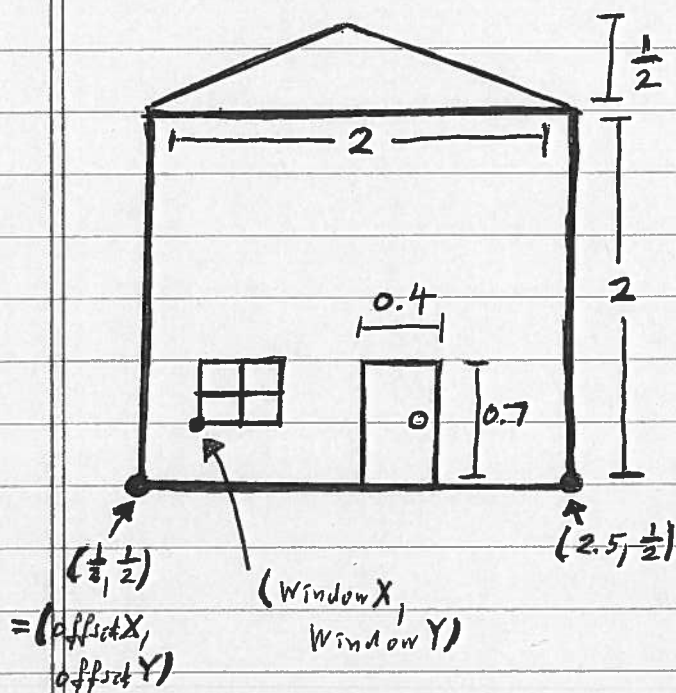 1/2
2
2
0.4
0.7
(1/2, 1/2)
(2.5, 1/2)
= (offsetX,
offsetY)
(WindowX,
WindowY)